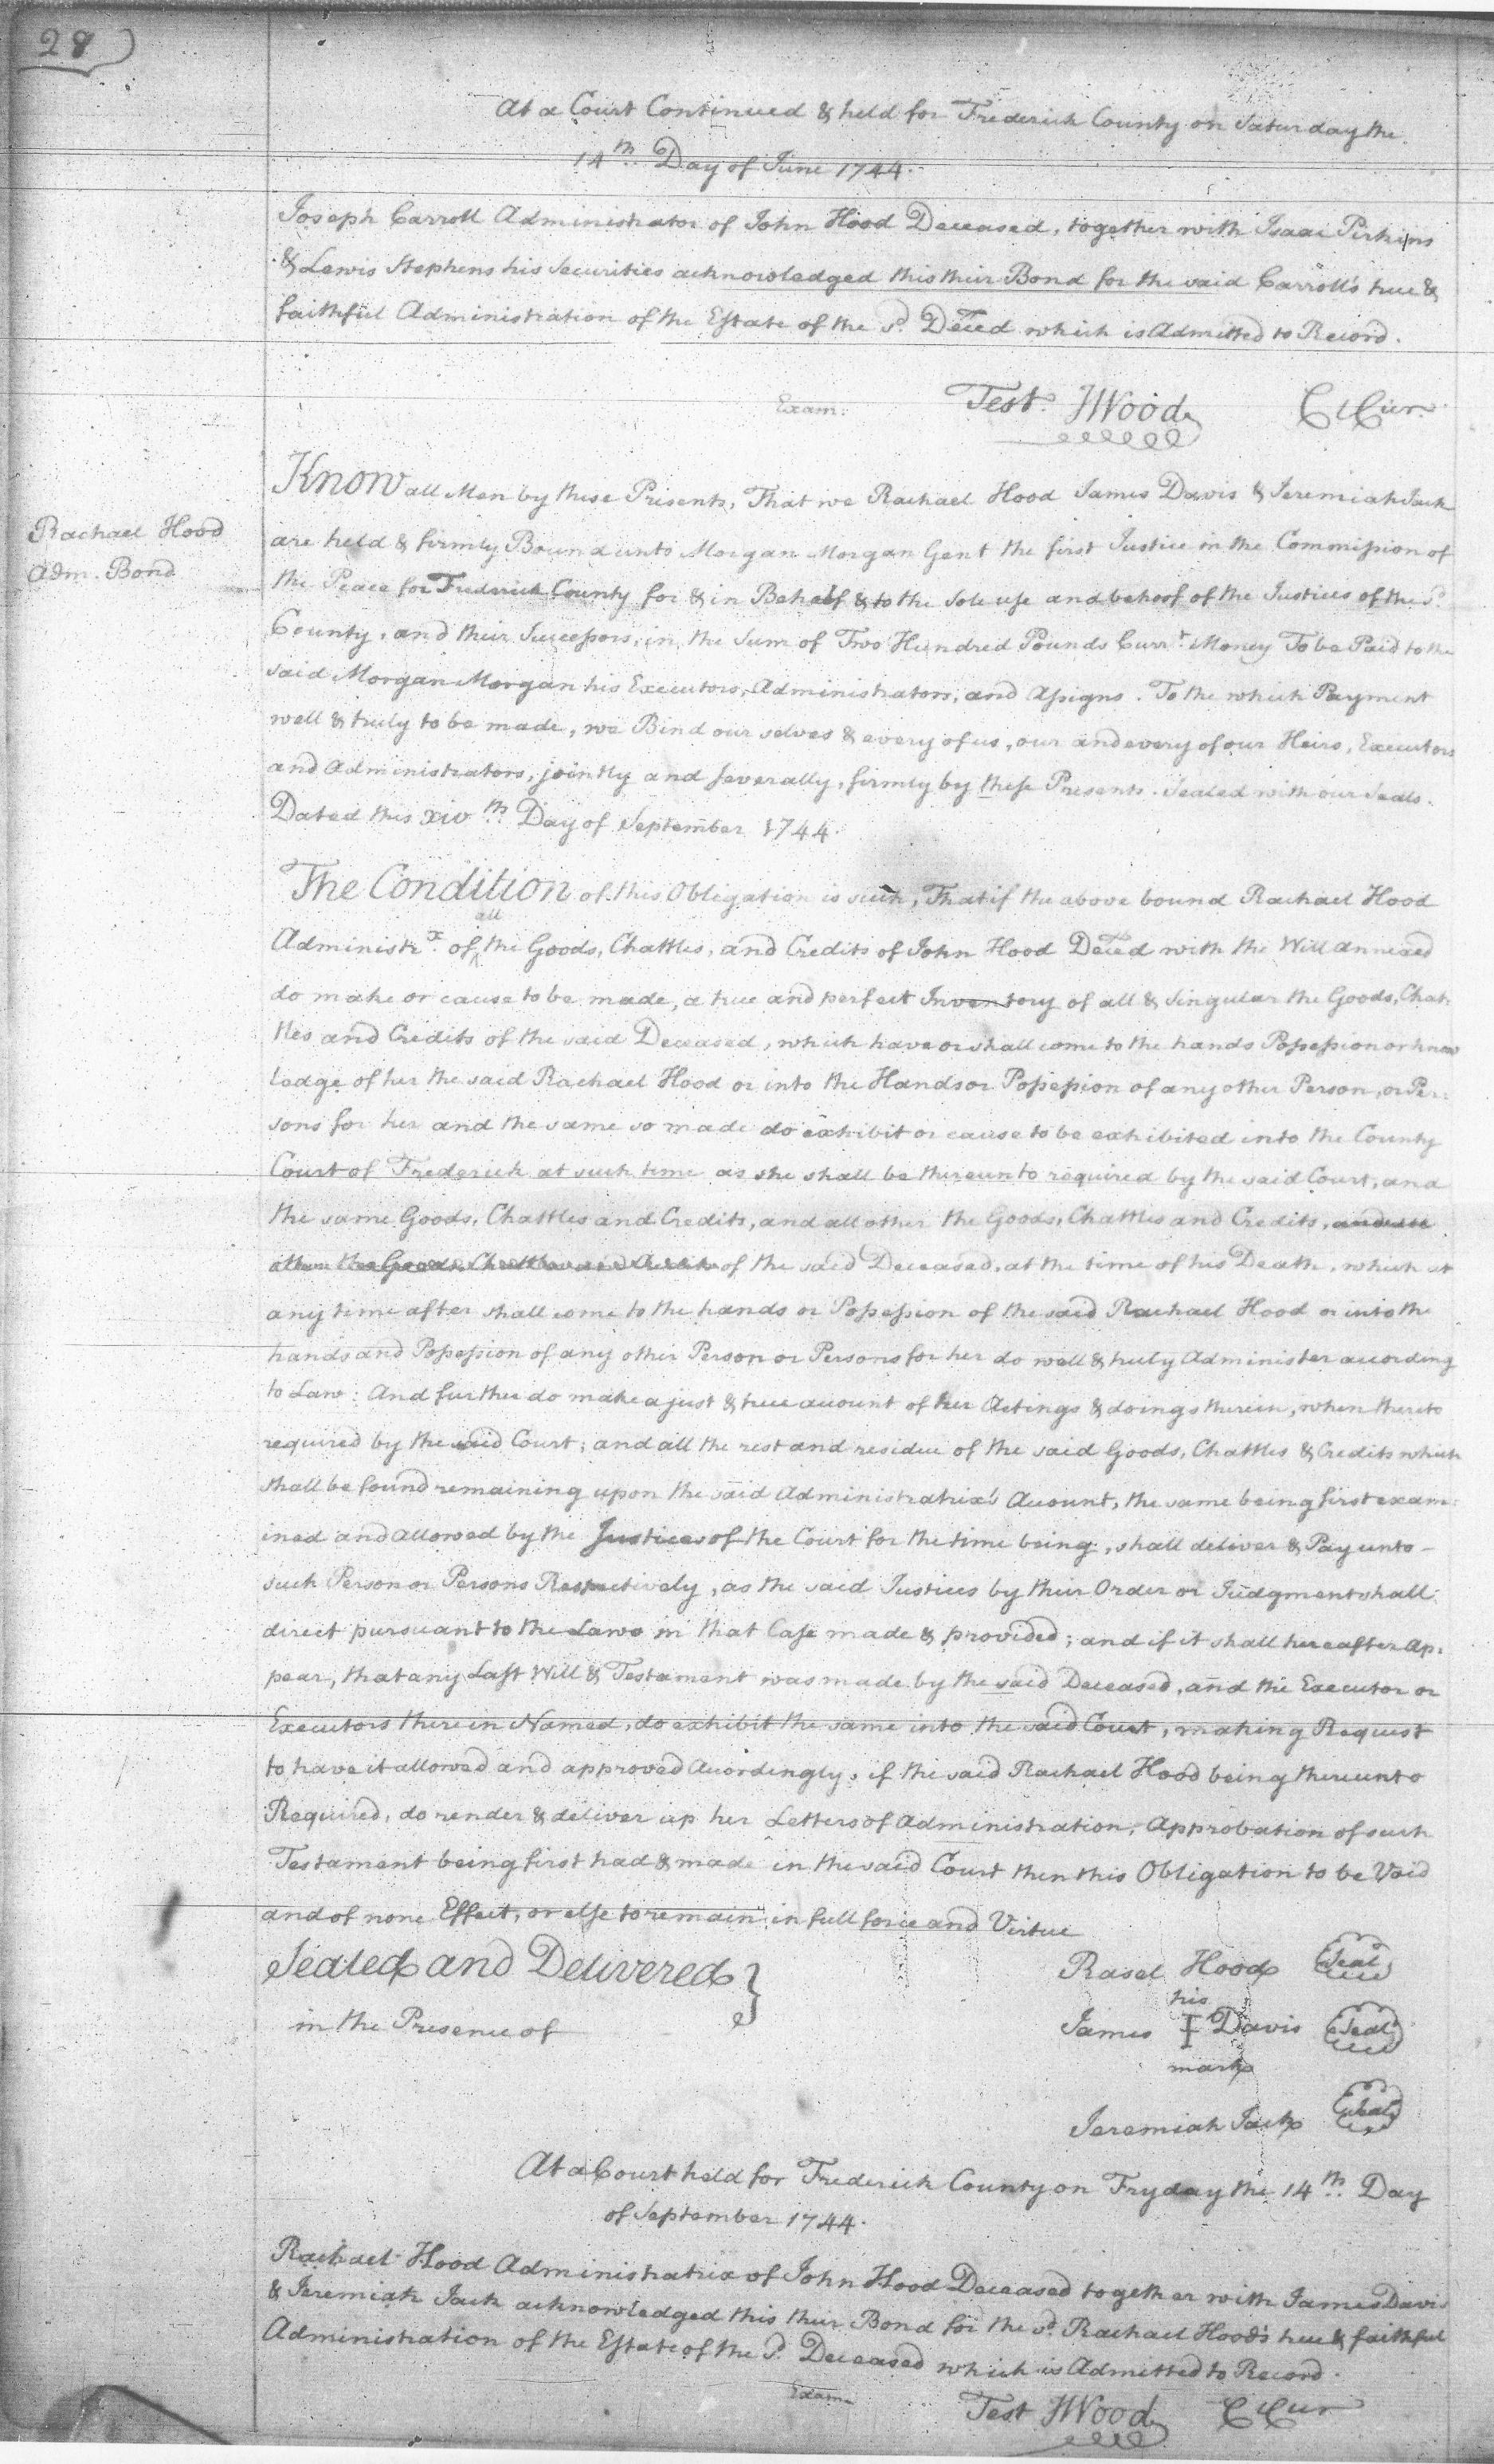 28)
At a Court Continued & held for Frederick County on Saturday the
14th. Day of June 1744.
Joseph Carroll Administrator of John Hood Deceased, together with Isaac Perkins
& Lewis Stephens his Securities acknowledged this their Bond for the said Carroll's true &
faithful Administration of the Estate of the sd. Deced which is Admitted to Record.
Exam:
Test. JWood C Cur.
Rachael Hood
Adm. Bond
Know all Men by these Presents, That we Rachael Hood James Davis & Jeremiah Jack
are held & firmly Bound unto Morgan Morgan Gent the first Justice in the Commission of
the Peace for Frederick County for & in Behalf & to the Sole use and behoof of the Justices of the sd.
County, and their Successors, in the Sum of Two Hundred Pounds Currt. Money To be Paid to the
said Morgan Morgan his Executors, Administrators, and Assigns. To the which Payment
well & truly to be made, we Bind our selves & every of us, our and every of our Heirs, Executors
and Administrators, jointly and severally, firmly by these Presents. Sealed with our Seals.
Dated this xivth. Day of September 1744.
The Condition of this Obligation is such, That if the above bound Rachael Hood
Administrx. of all the Goods, Chattles, and Credits of John Hood Deced with the Will annexed
do make or cause to be made, a true and perfect Inventory of all & Singular the Goods, Chat:
tles and Credits of the said Deceased, which have or shall come to the hands Possession or know
ledge of her the said Rachael Hood or into the Hands or Possession of any other Person, or Per:
sons for her and the same so made do exhibit or cause to be exhibited into the County
Court of Frederick at such time as she shall be thereunto required by the said Court, and
the same Goods, Chattles and Credits, and all other the Goods, Chattles and Credits, and all
other the Goods, Chattles and Credits of the said Deceased, at the time of his Death, which at
any time after shall come to the hands or Possession of the said Rachael Hood or into the
hands and Possession of any other Person or Persons for her do well & truly Administer according
to Law: And further do make a just & true account of her Actings & doings therein, when thereto
required by the said Court; and all the rest and residue of the said Goods, Chattles & Credits which
shall be found remaining upon the said Administratrix's Account, the same being first exam:
ined and allowed by the Justices of the Court for the time being, shall deliver & Pay unto -
such Person or Persons Respectively, as the said Justices by their Order or Judgment shall
direct pursuant to the Laws in that Case made & provided; and if it shall hereafter ap:
pear, that any Last Will & Testament was made by the said Deceased, and the Executor or
Executors therein Named, do exhibit the same into the said Court, making Request
to have it allowed and approved Accordingly, if the said Rachael Hood being thereunto
Required, do render & deliver up her Letters of Administration, Approbation of such
Testament being first had & made in the said Court then this Obligation to be Void
and of none Effect, or else to remain in full force and Virtue
Sealed and Delivered }
in the Presence of
Rasel Hood Seal
his
James I Davis Seal
mark
Jeremiah Jack Seal
At a Court held for Frederick County on Fryday the 14th. Day
of September 1744.
Rachael Hood Administratrix of John Hood Deceased together with James Davis
& Jeremiah Jack acknowledged this their Bond for the sd. Rachael Hood's true & faithful
Administration of the Estate of the sd. Deceased which is Admitted to Record.
Exam
Test JWood C Cur